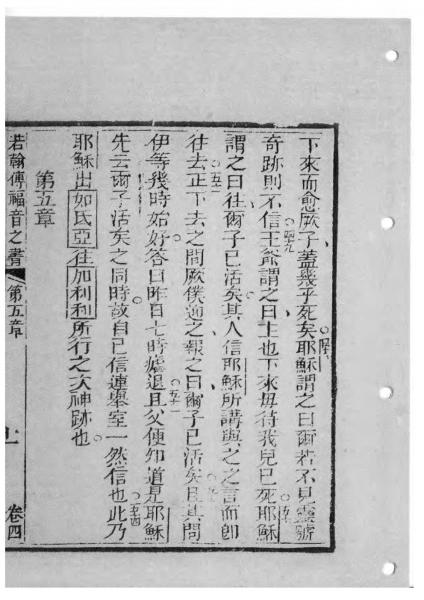 下來而愈厥子蓋幾乎死矣耶穌謂之曰爾若不見靈號
奇跡則不信王爺謂之曰主也下來毋待我兒已死耶穌
謂之曰往爾子已活矣其人信耶穌所講與之之言而即
往去正下去之間厥僕迎之報之曰爾子已活矣且其問
伊等幾時始好答曰昨日七時瘧退且父便知道是耶穌
先云爾子活矣之同時故自已信連舉室一然信也此乃
耶穌出如氏亞往加利利所行之次神跡也
第五章
若翰傳福音之書 第五章 卷四